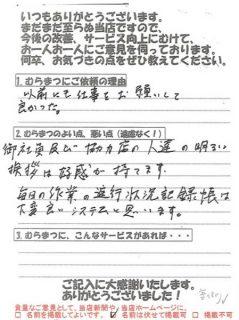 いつもありがとうございます。
まだまだ至らぬ当店ですので、
今後の改善、サービス向上にむけて、
お一人お一人にご意見を伺っております。
何卒、お気づきの点をぜひ教えてください。
1.むらまつにご依頼の理由
以前にも仕事をお願いして
良かった。
2.むらまつのよい点、悪い点(遠慮なく!)
御社社員及び協力店の人達の明るい
挨拶は好感が持てます。
毎日の作業の進行状況記録帳は
大変良いシステムと思います。
3.むらまつに、こんなサービスがあれば・・・
ご記入に大感謝いたします。
ありがとうございました!
貴重なご意見として、当店新聞や、当店ホームページに、
□ 名前を掲載してよいです。 ☑ 名前は伏せて掲載可 □ 掲載不可